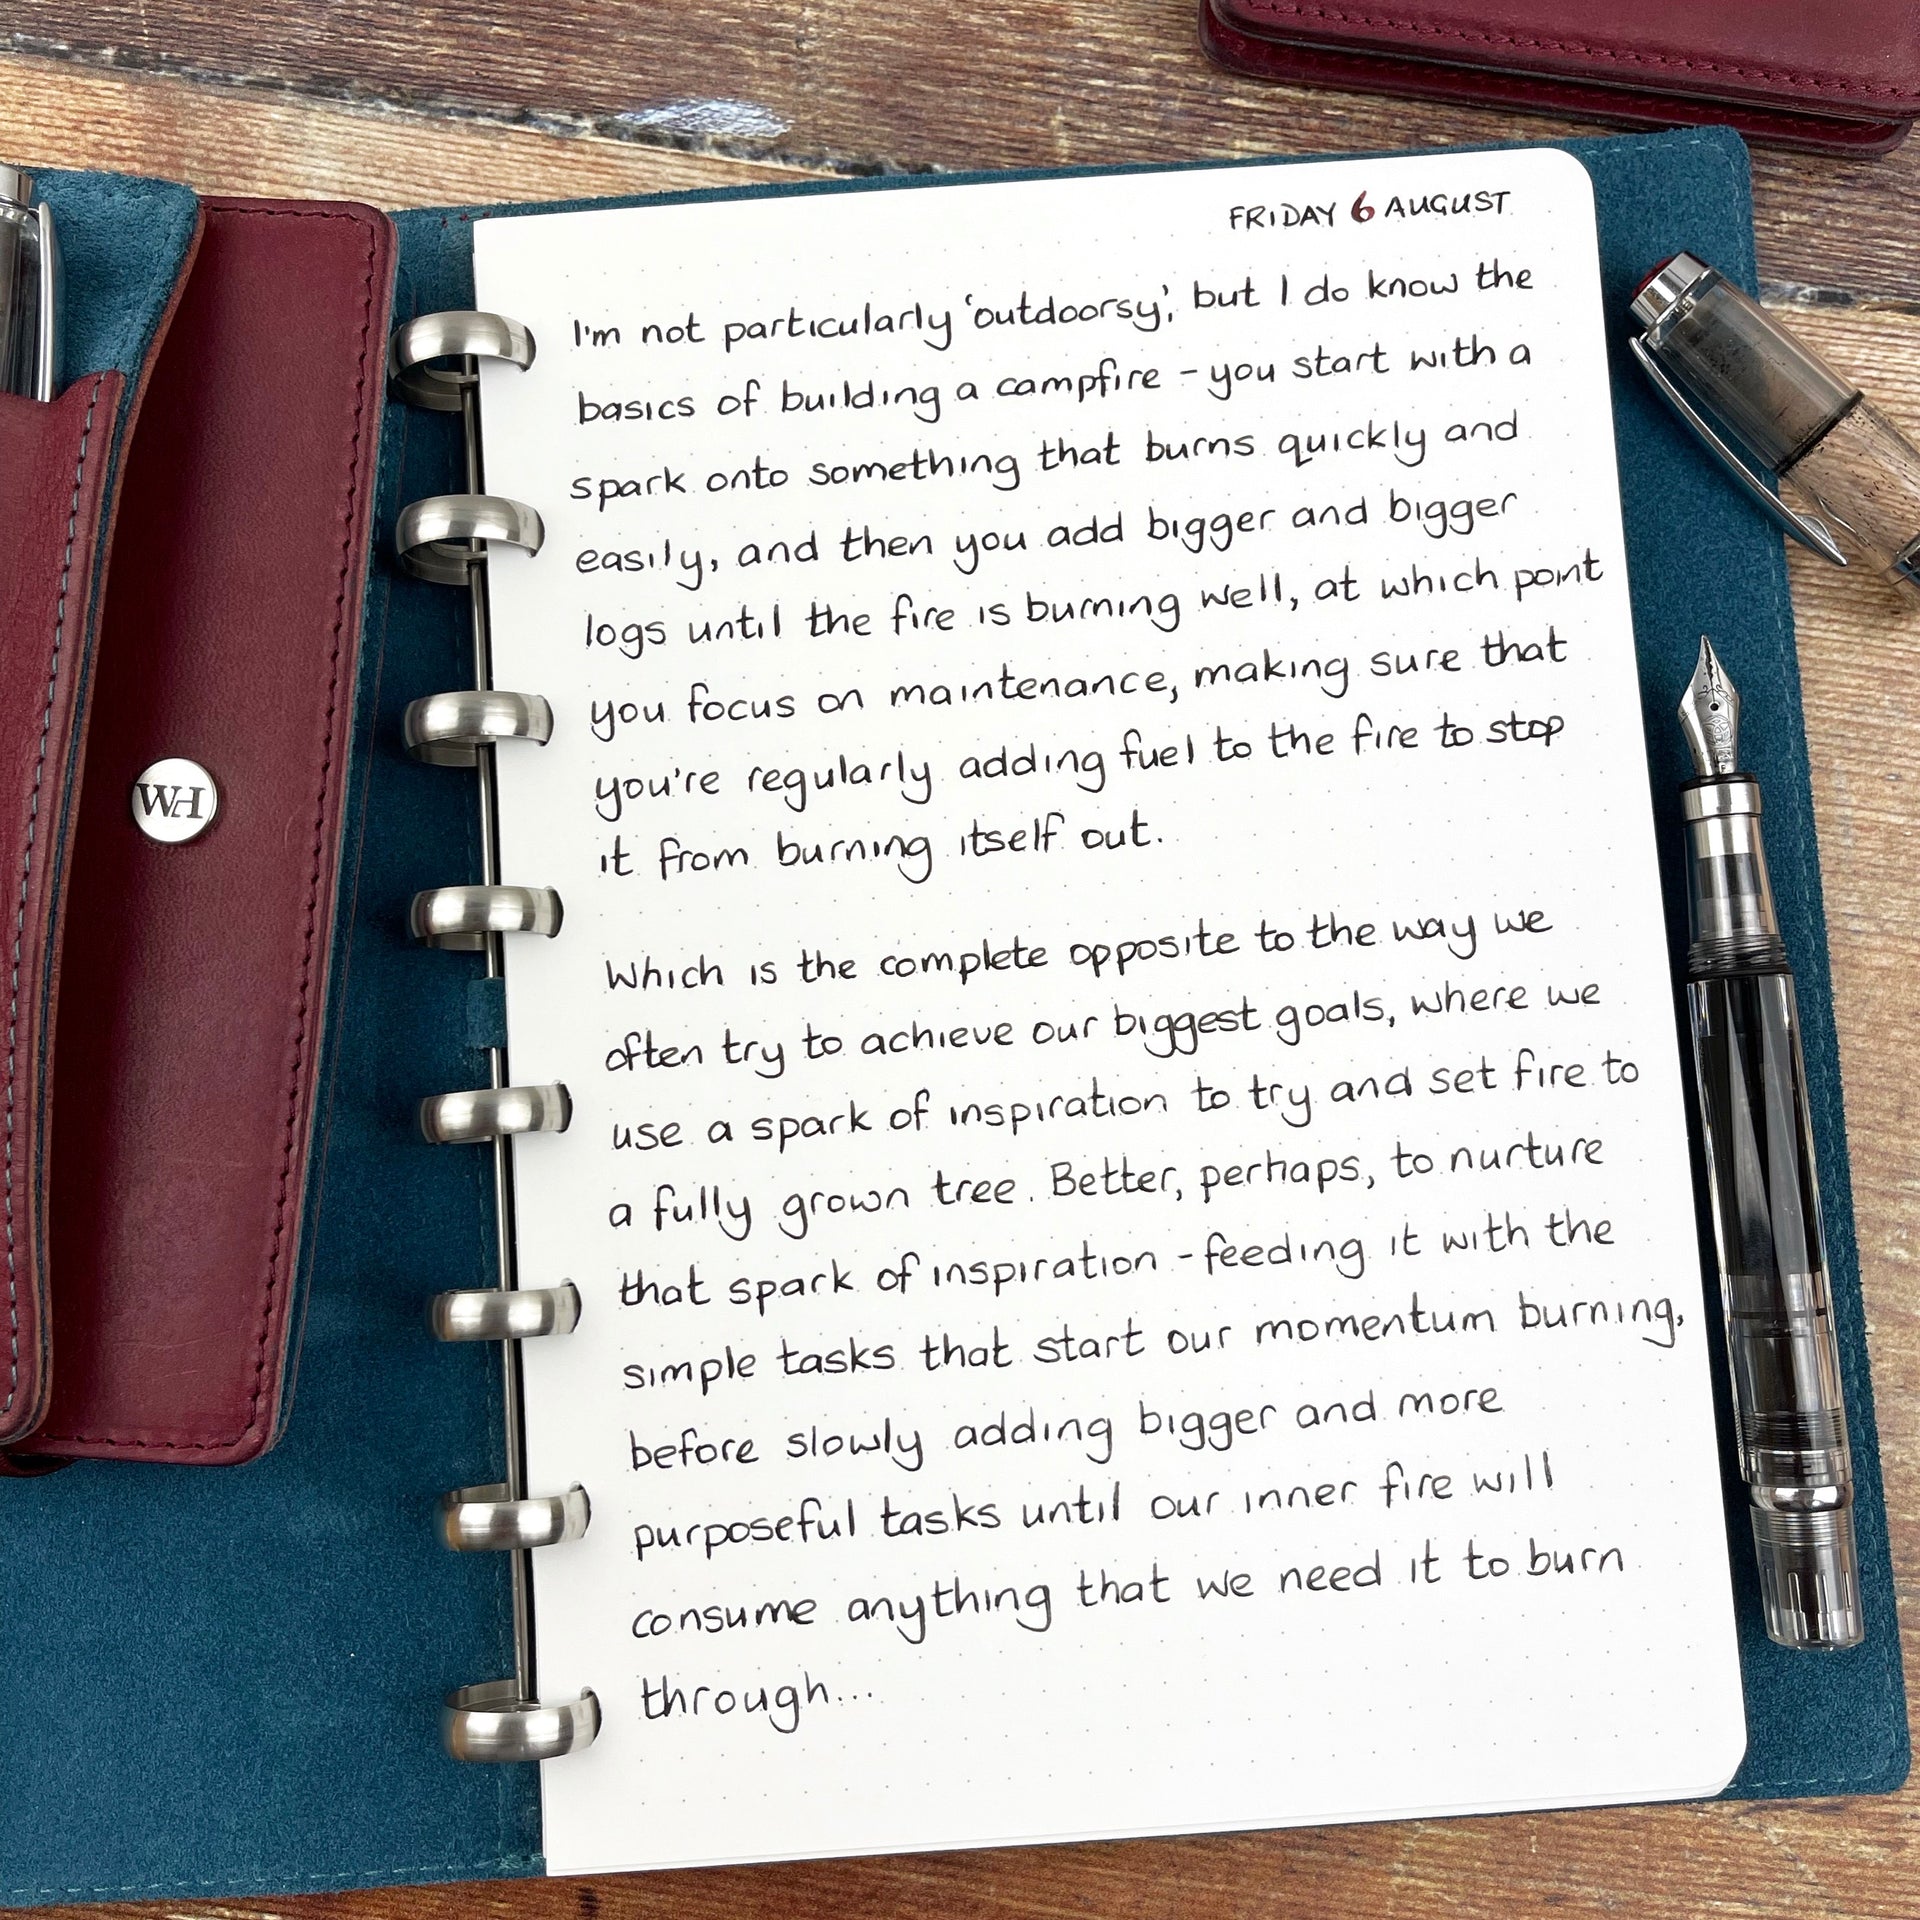 FRIDAY 6 AUGUST
I'm not particularly 'outdoorsy', but I do know the
basics of building a campfire - you start with a
spark onto something that burns quickly and
easily, and then you add bigger and bigger
logs until the fire is burning well, at which point
you focus on maintenance, making sure that
you're regularly adding fuel to the fire to stop
it from burning itself out.
Which is the complete opposite to the way we
often try to achieve our biggest goals, where we
use a spark of inspiration to try and set fire to
a fully grown tree. Better, perhaps, to nurture
that spark of inspiration - feeding it with the
simple tasks that start our momentum burning,
before slowly adding bigger and more
purposeful tasks until our inner fire will
consume anything that we need it to burn
through...
WH